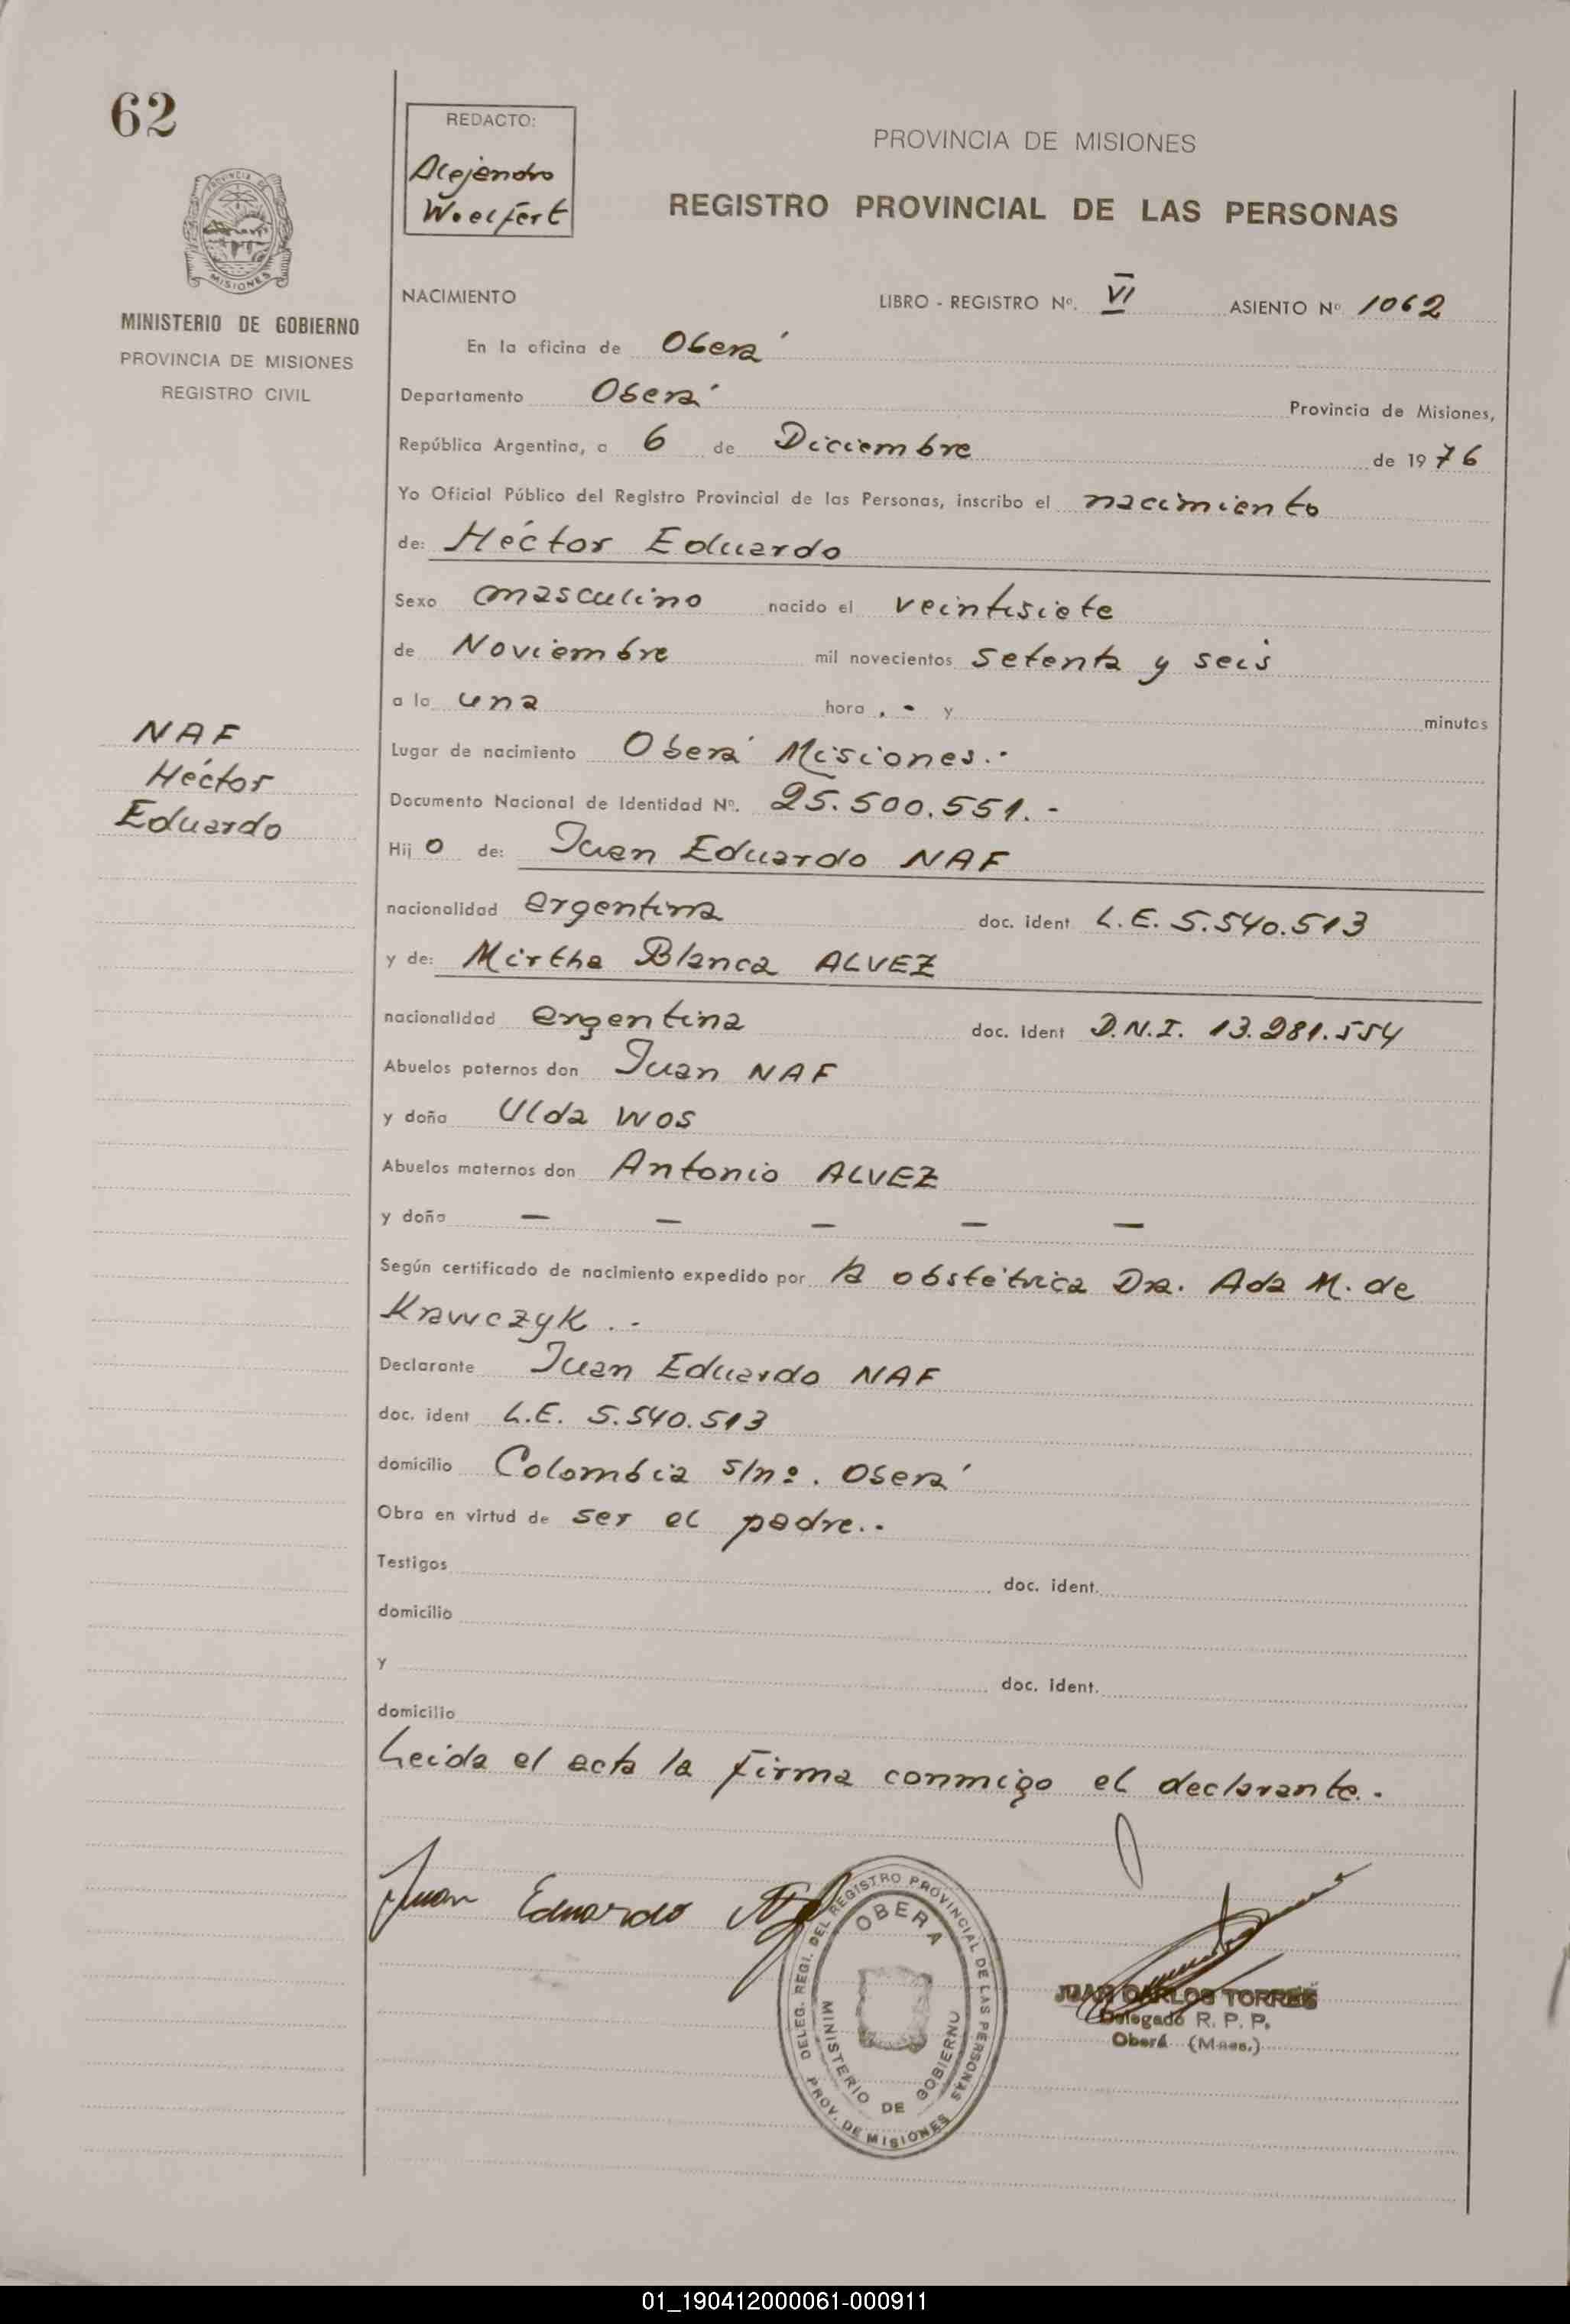 62
REDACTO:
Alejandro
Woelfert
PROVINCIA DE MISIONES
REGISTRO PROVINCIAL DE LAS PERSONAS
PROVINCIA DE
MISIONES
MINISTERIO DE GOBIERNO
PROVINCIA DE MISIONES
REGISTRO CIVIL
NACIMIENTO LIBRO - REGISTRO Nº. VI ASIENTO Nº 1062
En la oficina de Oberá
Departamento Oberá Provincia de Misiones,
República Argentina, a 6 de Diciembre de 1976
Yo Oficial Público del Registro Provincial de las Personas, inscribo el nacimiento
de: Héctor Eduardo
Sexo masculino nacido el veintisiete
de Noviembre mil novecientos setenta y seis
a la una hora . - y minutos
NAF
Héctor
Eduardo
Lugar de nacimiento Oberá Misiones.-
Documento Nacional de Identidad Nº. 25.500.551.-
Hij o de: Juan Eduardo NAF
nacionalidad argentina doc. ident L.E. 5.540.513
y de: Mirtha Blanca ALVEZ
nacionalidad argentina doc. ident D.N.I. 13.281.554
Abuelos paternos don Juan NAF
y doña Ulda WOS
Abuelos maternos don Antonio ALVEZ
y doña — — — — —
Según certificado de nacimiento expedido por la obstétrica Dra. Ada M. de
Krawczyk.-
Declarante Juan Eduardo NAF
doc. ident L.E. 5.540.513
domicilio Colombia s/nº. Oberá
Obra en virtud de ser el padre.-
Testigos doc. ident.
domicilio
y doc. ident.
domicilio
Leida el acta la firma conmigo el declarante.-
Juan Eduardo Naf
DELEG. REGI. DEL REGISTRO PROVINCIAL DE LAS PERSONAS
OBERA
MINISTERIO DE GOBIERNO
PROV. DE MISIONES
JUAN CARLOS TORRES
Delegado R. P. P.
Oberá (Mnes.)
01_190412000061-000911